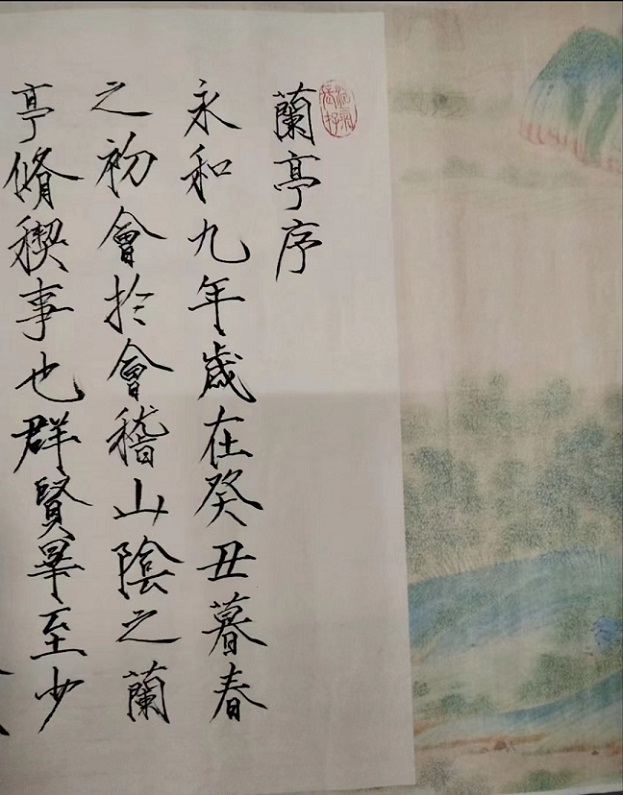 蘭亭序
永和九年歲在癸丑暮春
之初會於會稽山陰之蘭
亭脩稧事也群賢畢至少